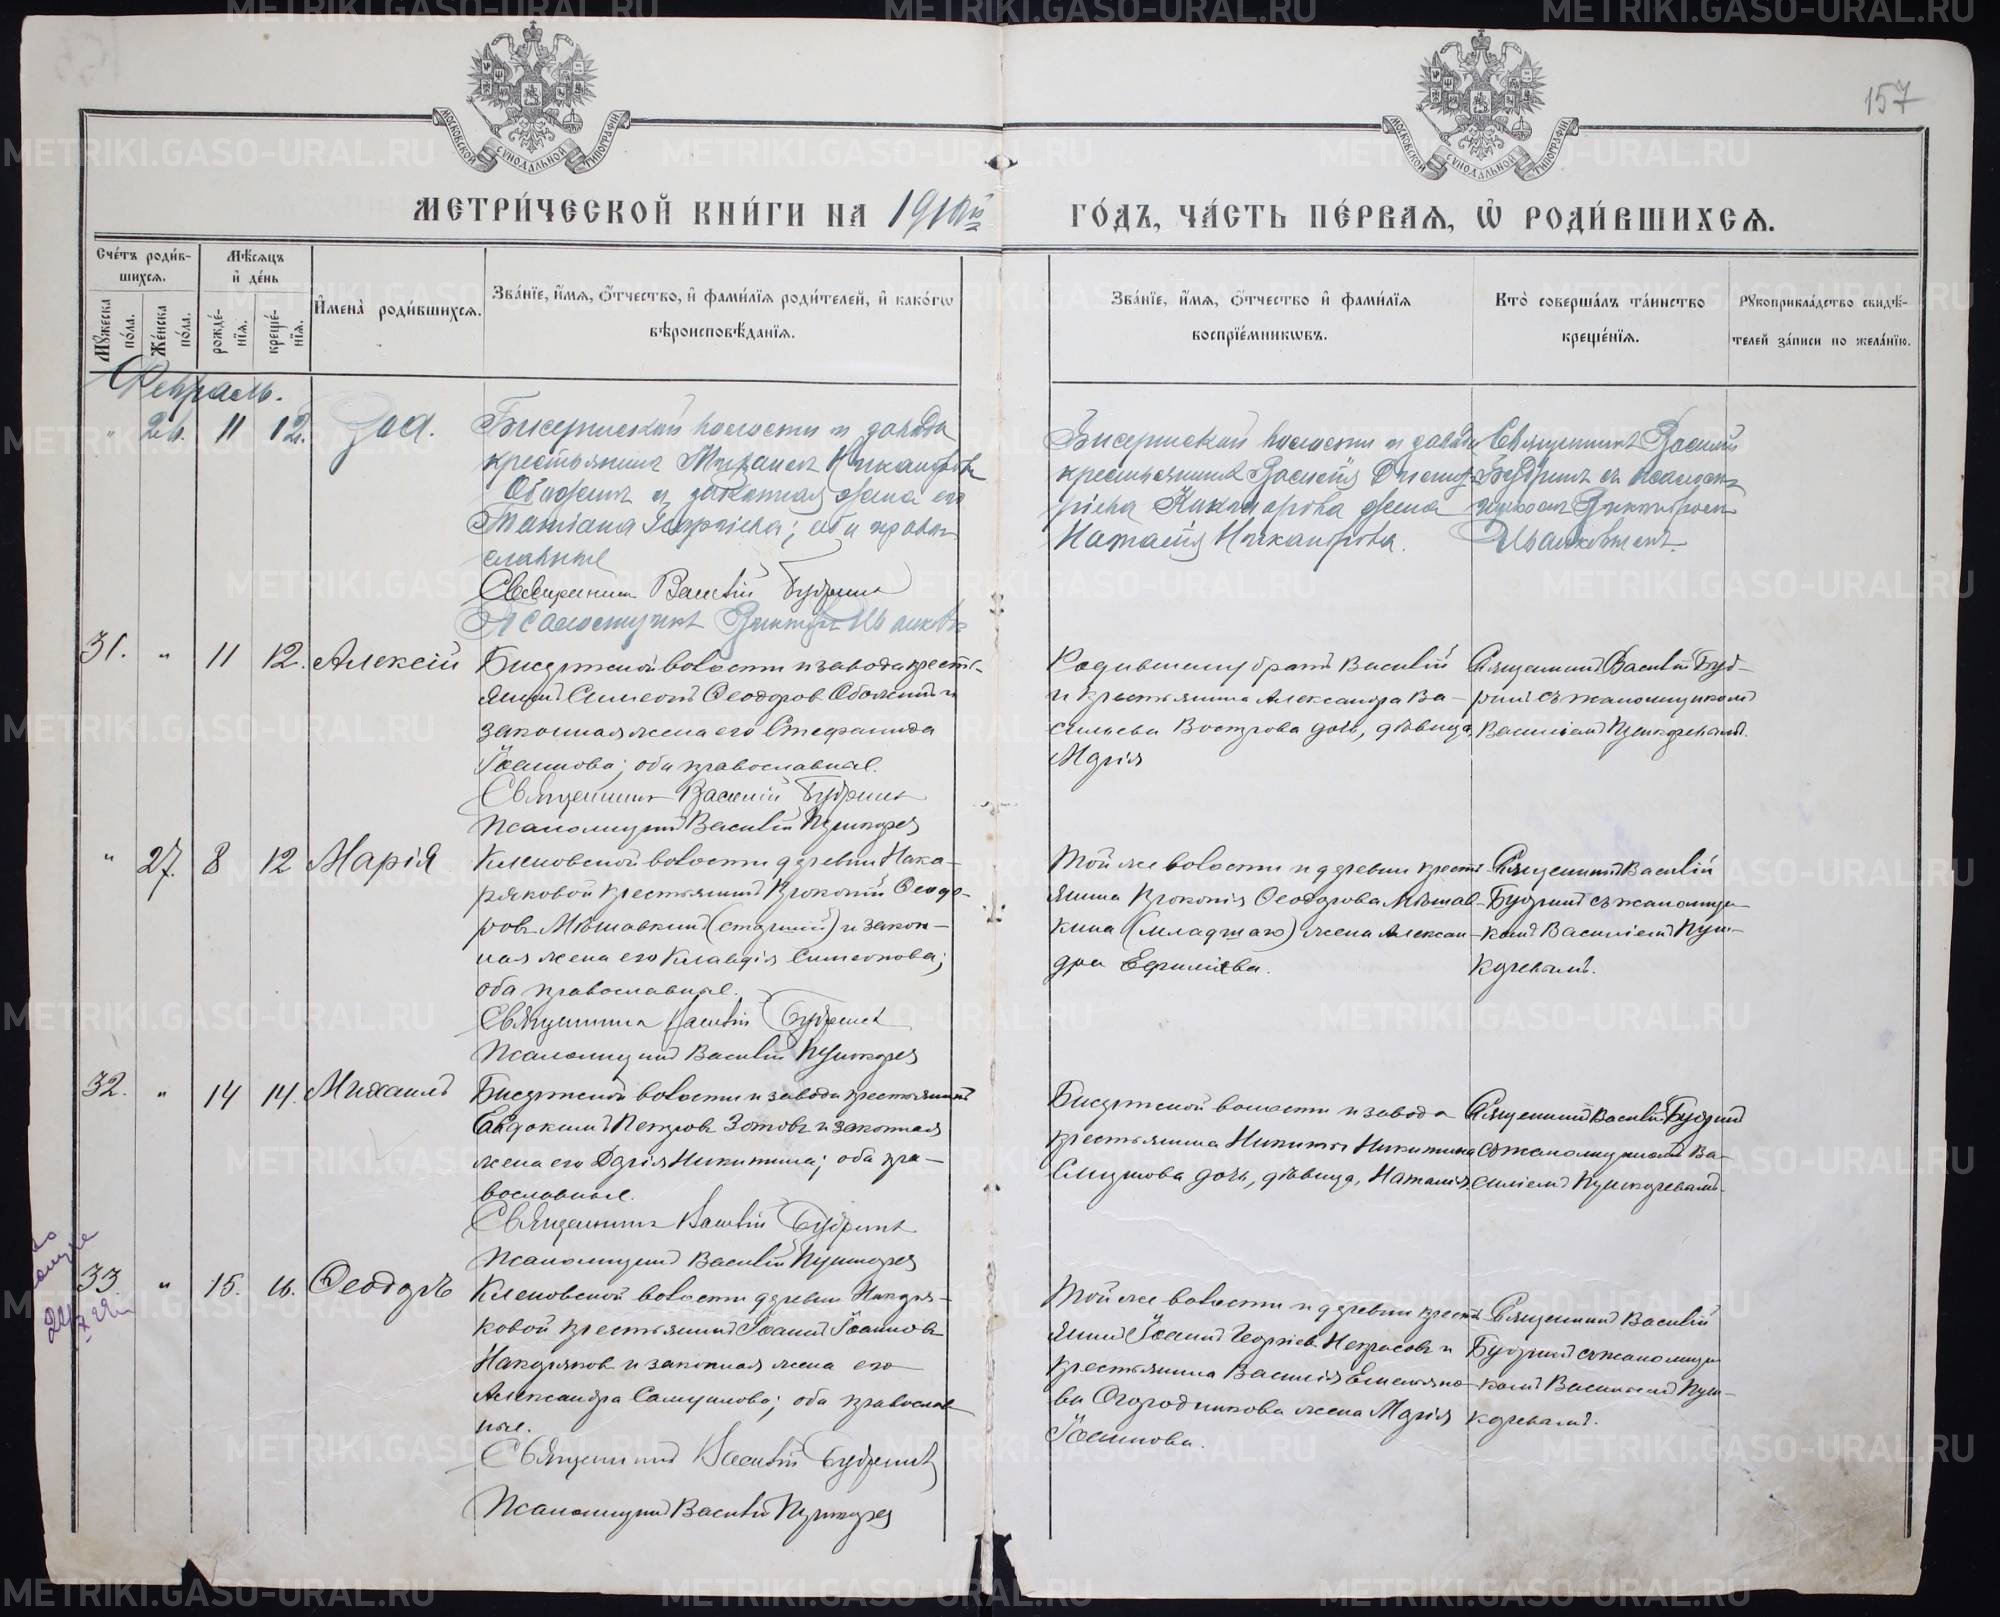 157
МОСКОВСКОЙ СѴНОДАЛЬНОЙ ТИПОГРАФІИ
МОСКОВСКОЙ СѴНОДАЛЬНОЙ ТИПОГРАФІИ
МЕТРИ́ЧЕСКОЙ КНИ́ГИ НА 1910й
ГО́ДЪ, ЧА́СТЬ ПЕ́РВАЯ, Ѡ҆ РОДИ́ВШИХСЯ.
Сче́тъ роди́в-
шихся.
Мѣ́сяцъ
и҆ де́нь
Мꙋ́жеска по́ла.
Же́нска по́ла.
рожде́-
нїя.
креще́-
нїя.
И҆мена̀ роди́вшихся.
Зва́нїе, и҆́мя, ѻ҆́тчество, и҆ фами́лїя роди́телей, и҆ како́гѡ
вѣроисповѣ́данїя.
Зва́нїе, и҆́мя, ѻ҆́тчество и҆ фами́лїя
воспрїе́мникѡвъ.
Кто̀ соверша́лъ та́инство
креще́нїя.
Рꙋкоприкла́дство свидѣ́-
телей за́писи по жела́нїю.
Февраль.
" 26. 11 12. Зоя.
Бисертской волости и завода
крестьянинъ Михаилъ Никаноровъ
и законная жена его
Татіана Георгіева; оба право-
славные
Священникъ Василій Будринъ
Псаломщикъ
Бисертской волости и завода
крестьянина Василія
жена
Никанорова.
Священникъ Василій
Будринъ съ псалом-
щикомъ
31. " 11 12. Алексій
Бисертской волости и завода кресть-
янинъ Симеонъ Ѳеодоров и
законная жена его Стефанида
Іоаннова; оба православные.
Священникъ Василій Будринъ
Псаломщикъ Василій Пушкарев
Родившемуся братъ Василій
и крестьянина Александра Ва-
сильева Вострова дочь, дѣвица,
Марія
Священникъ Василій Буд-
ринъ съ псаломщикомъ
Василіемъ Пушкаревымъ.
" 27. 8 12 Марія
Кленовской волости деревни Нака-
ряковой крестьянинъ Прокопій Ѳеодо-
ровъ (старшій) и закон-
ная жена его Клавдія Симеонова;
оба православные.
Священникъ Василій Будринъ
Псаломщикъ Василій Пушкарев
Той же волости и деревни кресть-
янина Прокопія Ѳеодорова
кина (младшаго) жена Алексан-
дра
Священникъ Василій
Будринъ съ псаломщи-
комъ Василіемъ Пуш-
каревымъ.
32. " 14 14. Михаилъ
Бисертской волости и завода крестьянинъ
Евдокимъ Петровъ Зотовъ и законная
жена его Дарія Никитина; оба пра-
вославные.
Священникъ Василій Будринъ
Псаломщикъ Василій Пушкарев
Бисертской волости и завода
крестьянина Никиты Никитина
дочь, дѣвица, Наталія.
Священникъ Василій Будринъ
съ псаломщикомъ Ва-
силіемъ Пушкаревымъ.
33 " 15. 16. Ѳеодоръ
Кленовской волости деревни Накаря-
ковой крестьянинъ Іоаннъ Іоанновъ
Накаряков и законная жена его
Александра Самуилова; оба православ-
ные.
Священникъ Василій Будринъ
Псаломщикъ Василій Пушкарев
Той же волости и деревни кресть-
янинъ Іоаннъ Георгіев Некрасовъ и
крестьянина Василія Емельяно-
ва Огородникова жена Марія
Іоаннова.
Священникъ Василій
Будринъ съ псаломщи-
комъ Василіемъ Пуш-
каревымъ.
METRIKI.GASO-URAL.RU